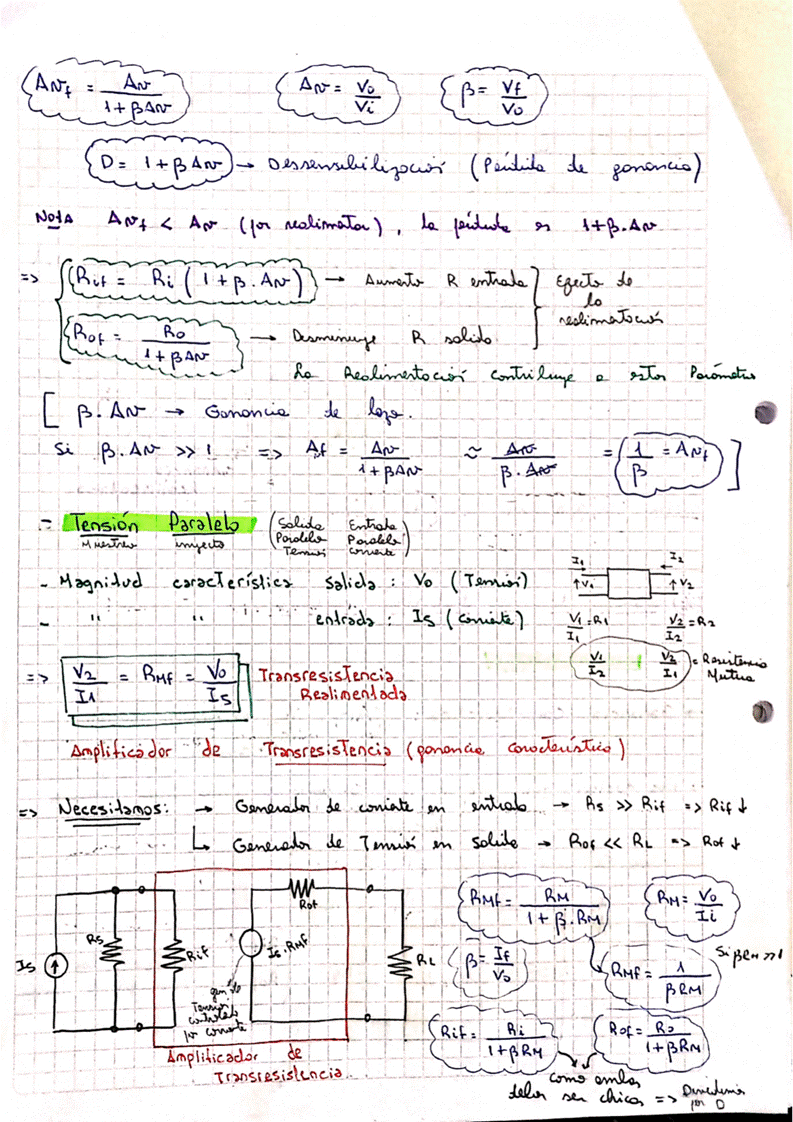 A𝑣f = A𝑣 / (1+βA𝑣)   A𝑣 = Vo/Vi   β = Vf/Vo
D = 1+βA𝑣 → Dessensibilización (Pérdida de ganancia)
Nota A𝑣f < A𝑣 (por realimentar), la pérdida es 1+β.A𝑣
=> Rif = Ri (1+β.A𝑣) → Aumenta R entrada
Efecto de la realimentación
Rof = Ro / (1+βA𝑣) → Desminuye R salida
La Realimentación contribuye a estos Parámetros
[ β.A𝑣 → Ganancia de lazo.
Si β.A𝑣 >> 1 => Af = A𝑣 / (1+βA𝑣) ≈ A𝑣 / (β.A𝑣) = 1/β = A𝑣f ]
= Tensión Paralelo (Salida Paralelo Tensión Entrada Paralelo corriente)
Muestreo inyecto
I1 I2
V1 V2
- Magnitud característica salida: Vo (Tensión)
- " " entrada: Is (corriente)
V1/I1 = R1   V2/I2 = R2
V1/I2   V2/I1 = Resistencia Mutua
=> V2/I1 = RMf = Vo/Is Transresistencia Realimentada
Amplificador de Transresistencia (ganancia característica)
=> Necesitamos: → Generador de corriente en entrada → Rs >> Rif => Rif ↓
↳ Generador de Tensión en Salida → Rof << RL => Rof ↓
Is Rs Rif Is.RMf Rof RL
gen
Tensión
controlado
por corriente
Amplificador de
Transresistencia
RMf = RM / (1+β.RM)   RM = Vo/Ii
Si βRM >> 1
β = If/Vo   RMf = 1 / βRM
Rif = Ri / (1+βRM)   Rof = Ro / (1+βRM)
como ambas
deben ser chicas => Dividimos
por D